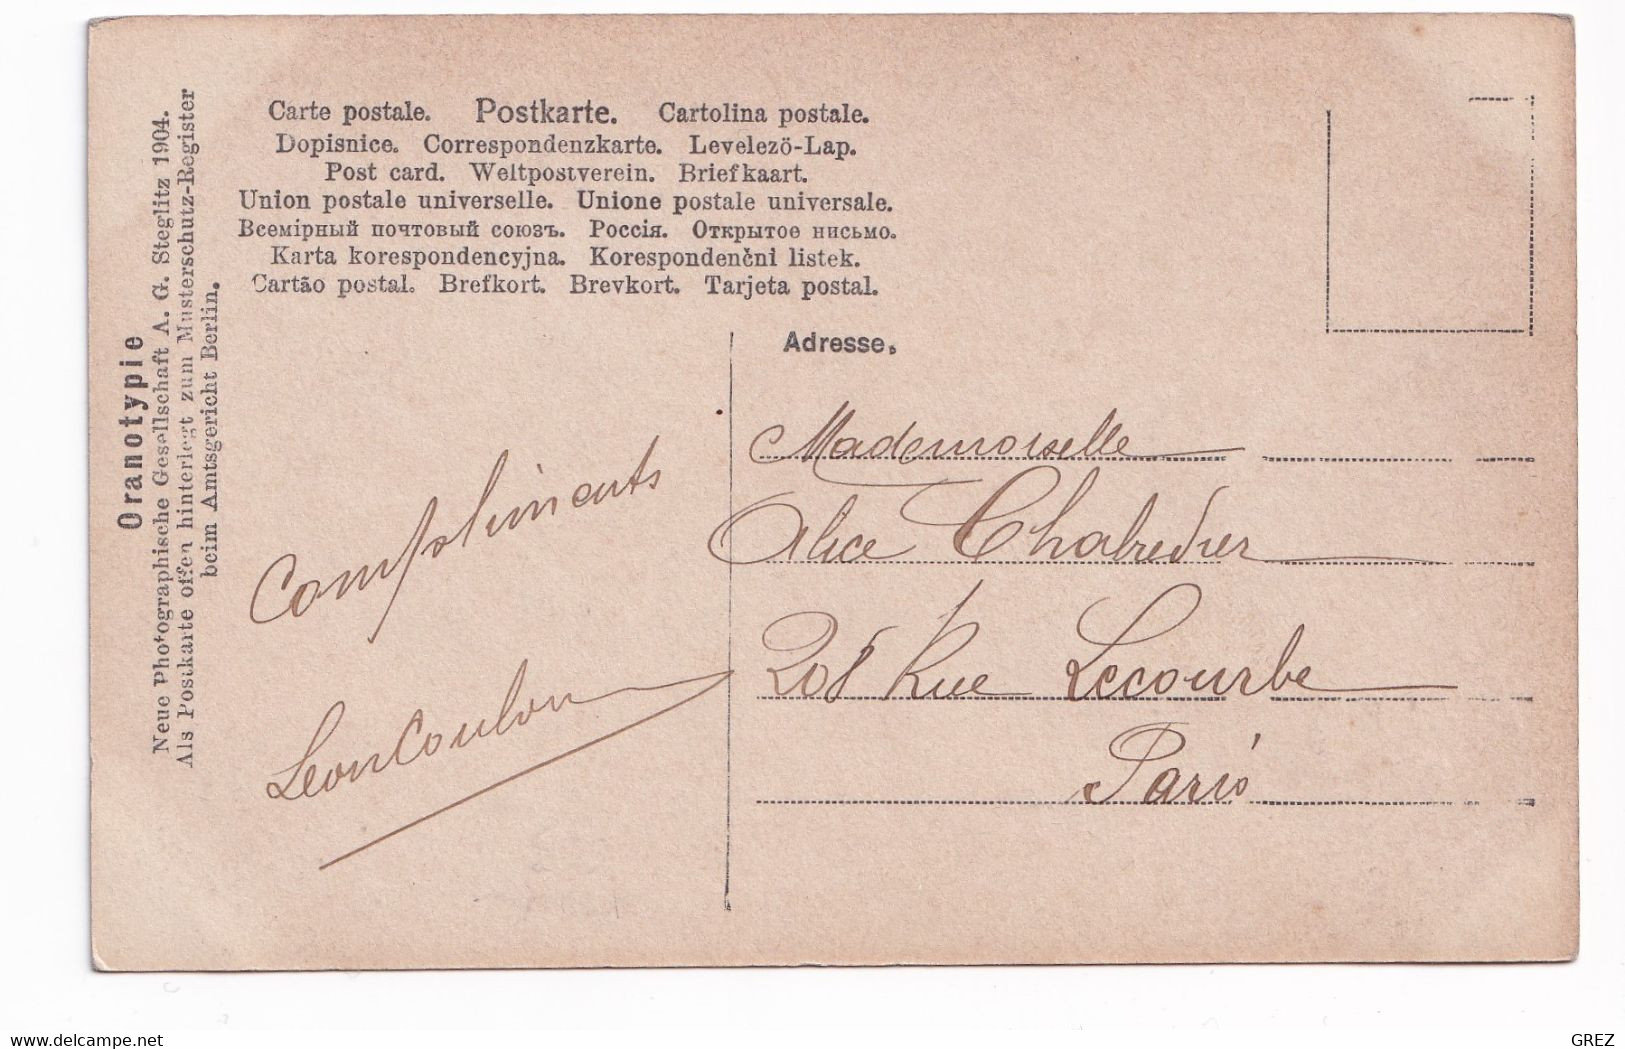 Carte postale. Postkarte. Cartolina postale.
Dopisnice. Correspondenzkarte. Levelező-Lap.
Post card. Weltpostverein. Briefkaart.
Union postale universelle. Unione postale universale.
Всемірный почтовый союзъ. Россія. Открытое письмо.
Karta korespondencyjna. Korespondenčni listek.
Cartão postal. Brefkort. Brevkort. Tarjeta postal.
Oranotypie
Neue Photographische Gesellschaft A. G. Steglitz 1904.
Als Postkarte offen hinterlegt zum Musterschutz-Register
beim Amtsgericht Berlin.
Compliments
Leon Coulon
Adresse.
Mademoiselle
Alice Chabredier
208 Rue Lecourbe
Paris
www.delcampe.net
GREZ